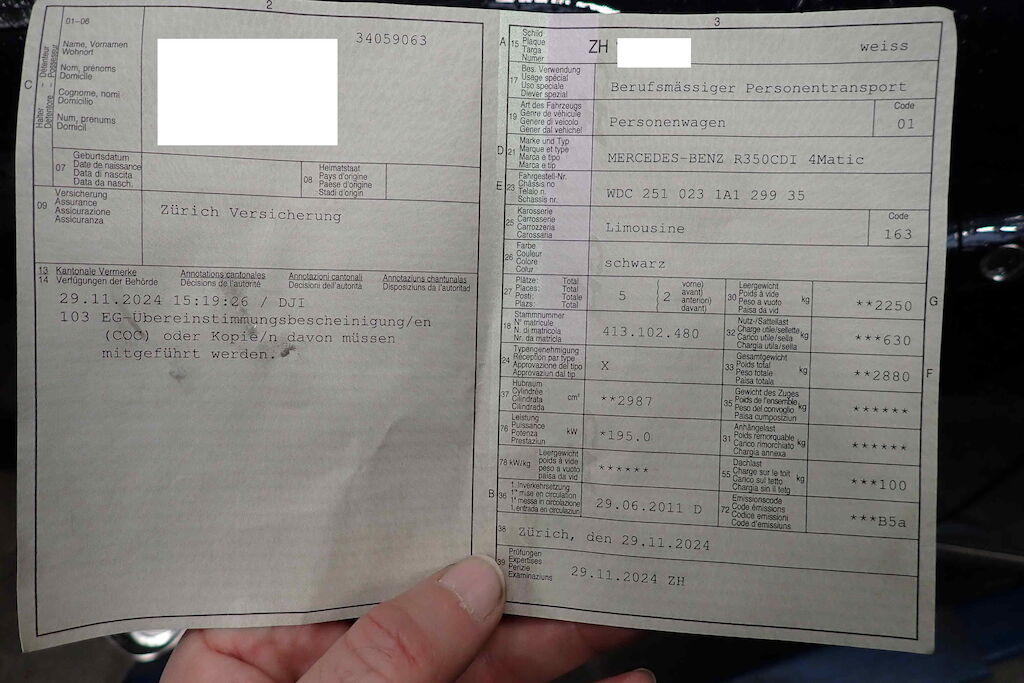 2
01-06
Halter - Détenteur
Detentore - Possessur
C
Name, Vornamen
Wohnort
Nom, prénoms
Domicile
Cognome, nomi
Domicilio
Num, prenums
Domicil
34059063
07
Geburtsdatum
Date de naissance
Data di nascita
Data da nasch.
08
Heimatstaat
Pays d'origine
Paese d'origine
Stadi d'origin
09
Versicherung
Assurance
Assicurazione
Assicuranza
Zürich Versicherung
13 Kantonale Vermerke Annotations cantonales Annotazioni cantonali Annotaziuns chantunalas
14 Verfügungen der Behörde Décisions de l'autorité Decisioni dell'autorità Disposiziuns da l'autoritad
29.11.2024 15:19:26 / DJI
103 EG-Übereinstimmungsbescheinigung/en
(COC) oder Kopie/n davon müssen
mitgeführt werden.
3
A 15
Schild
Plaque
Targa
Numer
ZH
weiss
17
Bes. Verwendung
Usage spécial
Uso speciale
Diever spezial
Berufsmässiger Personentransport
19
Art des Fahrzeugs
Genre de véhicule
Genere di veicolo
Gener dal vehichel
Personenwagen
Code
01
D 21
Marke und Typ
Marque et type
Marca e tipo
Marca e tip
MERCEDES-BENZ R350CDI 4Matic
E 23
Fahrgestell-Nr.
Châssis no
Telaio n.
Schassis nr.
WDC 251 023 1A1 299 35
25
Karosserie
Carrosserie
Carrozzeria
Carossaria
Limousine
Code
163
26
Farbe
Couleur
Colore
Colur
schwarz
27
Plätze: Total
Places: Total
Posti: Totale
Plazs: Total
5 ( 2
vorne)
avant)
anteriori)
davant)
30
Leergewicht
Poids à vide
Peso a vuoto
Paisa da vid
kg
**2250
G
18
Stammnummer
N° matricule
N. di matricola
Nr. da matricla
413.102.480
32
Nutz-/Sattellast
Charge utile/sellette
Carico utile/sella
Chargia utila/sella
kg
***630
24
Typengenehmigung
Réception par type
Approvazione del tipo
Approvaziun dal tip
X
33
Gesamtgewicht
Poids total
Peso totale
Paisa totala
kg
**2880
F
37
Hubraum
Cylindrée
Cilindrata
Cilindrada
cm³
**2987
35
Gewicht des Zuges
Poids de l'ensemble
Peso del convoglio
Paisa cumposiziun
kg
******
76
Leistung
Puissance
Potenza
Prestaziun
kW
*195.0
31
Anhängelast
Poids remorquable
Carico rimorchiato
Chargia annexa
kg
******
78 kW/kg
Leergewicht
poids à vide
peso a vuoto
paisa da vid
******
55
Dachlast
Charge sur le toit
Carico sul tetto
Chargia sin il tetg
kg
***100
B 36
1. Inverkehrsetzung
1re mise en circulation
1a messa in circolazione
1. entrada en circulaziun
29.06.2011 D
72
Emissionscode
Code émissions
Codice emissioni
Code d'emissiuns
***B5a
38
Zürich, den 29.11.2024
39
Prüfungen
Expertises
Perizie
Examinaziuns
29.11.2024 ZH